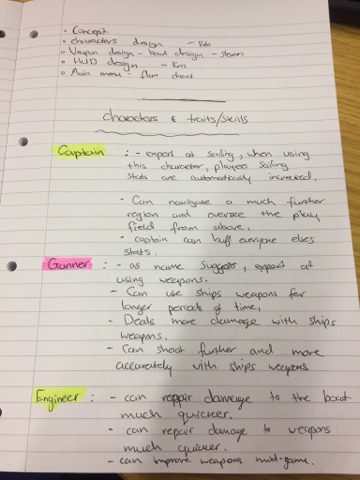 • Concept
• characters design - Edo
• Weapon design - boat design - Steven
• HUD design - Kim
• Main menu - flow chart
characters & traits/skills
Captain : - expert at sailing, when using
this character, players sailing
stats are automatically increased.
- Can navigate a much further
region and oversee the play
field from above.
- captain can buff everyone elses
stats.
Gunner : - as name suggests, expert at
using weapons.
- Can use ships weapons for
longer periods of time.
- Deals more damage with ships
weapons.
- Can shoot further and more
accurately with ships weapons
Engineer : - can reppair damage to the boat
much quicker.
- can repair damage to weapons
much quicker.
- can improve weapons mid-game.